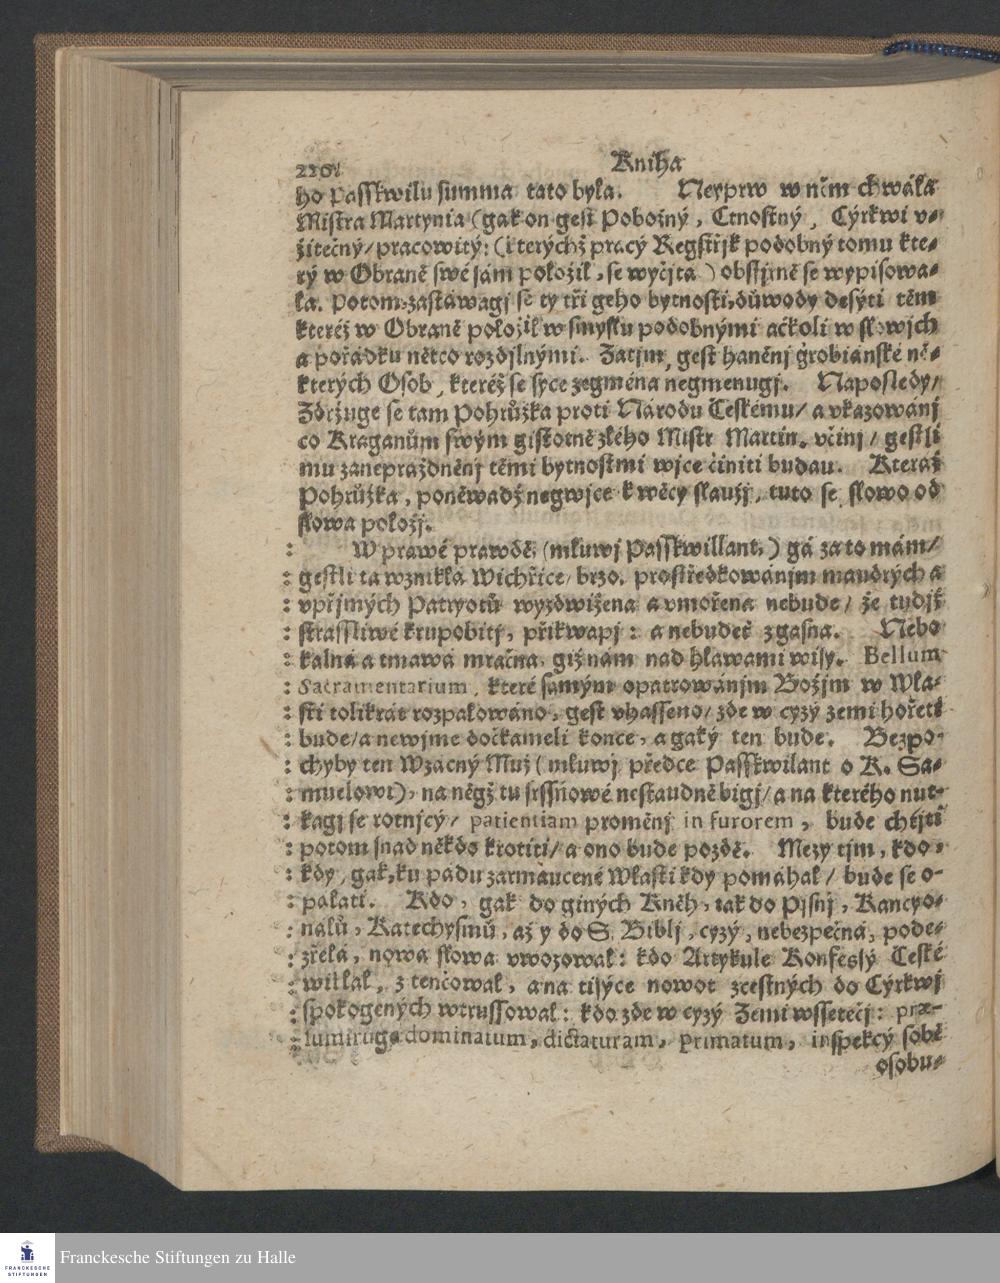 Kniha
ho Passkwilu summa tato byla. Neyprw w něm chwála
Mistra Martynia (gak on gest Pobožný, Ctnostný, Cýrkwi v-
žitečný/ pracowitý: (kterýchž pracý Regstřjk podobný tomu kte-
rý w Obraně swé sám položil, se wyčjta) obssjrně se wypisowa-
la. Potom zastáwagj se ty tři geho bytnosti, důwody desýti těm
kteréž w Obraně položil w smyslu podobnými ačkoli w slowjch
a pořádku něčo rozdjlnými. Zatjm, gest haněnj grobiánské ně-
kterých Osob, kteréž se syce zegména negmenugj. Naposledy/
Zdržuge se tam Pohrůžka proti Národu Českému/ a vkazowánj
co Kraganům swým gistotně zlého Mistr Martin. včinj/ gestli
mu zaneprazdněnj těmi bytnostmi wjce činiti budau. Kteraž
Pohrůžka, poněwadž negwjce k wěcy slaužj, tuto se slowo od
slowa položj.
: W prawé prawdě, (mluwj Passkwillant,) gá za to mám/
: gestli ta wzniklá Wichřice/ brzo, prostředkowánjm maudrých a
: vpřjmých Patryotů wyzdwižena a vmořena nebude/ že tudjž
: strassliwé krupobitj, přikwapj: a nebudeť zgasna. Nebo
: kalná a tmawá mračna, giž nám nad hlawami wisy. Bellum
: Sacramentarium, které samým opatrowánjm Božjm w Wla-
: sti tolikrát rozpalowáno, gest vhasseno/ zde w cyzý zemi hořeti
: bude/ a newjme dočkámeli konce, a gaký ten bude. Bezpo-
: chyby ten Wzácný Muž (mluwj předce Passkwilant o K. Sa-
: muelowi), na něgž tu srssňowé nestaudně bigj/ a na kterého nut-
: kagj se rotnjcý/ patientiam proměnj in furorem, bude chtjti
: potom snad někdo krotiti/ a ono bude pozdě. Mezy tjm, kdo-
: kdy, gak, ku pádu zarmaucené Wlasti kdy pomáhal/ bude se o-
: palati. Kdo, gak do giných Kněh, tak do Pjsnj, Kancyo-
: nálů, Katechysmů, až y do S. Biblj, cyzý, nebezpečná, pode-
: zřelá, nowá slowa vwozowal: kdo Artykule Konfessý České
: wiklal, ztenčowal, a na tisýce nowot zcestných do Cýrkwj
: spokogených wtrussowal: kdo zde w cyzý Zemi wssetečj: præ-
: dominatum, dictaturam, primatum, inspekcý sobě
osobu-
Franckesche Stiftungen zu Halle
FRANCKESCHE
STIFTUNGEN